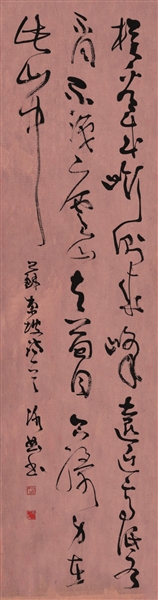 橫看成嶺側成峰遠近高低各
不同不識廬山真面目只緣身在
此山中
蘇東坡詩